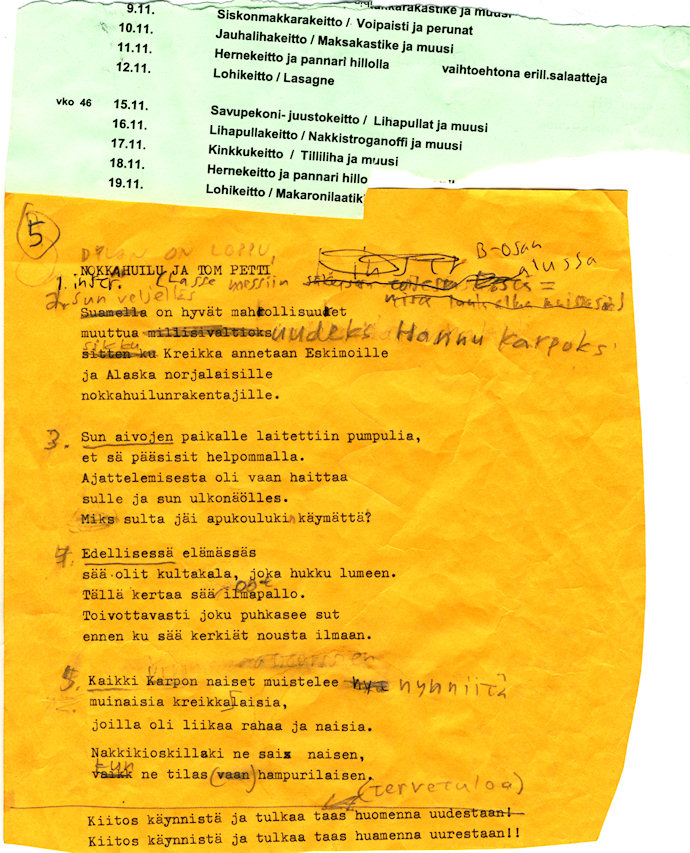 9.11. karakastike ja muusi
10.11. Siskonmakkarakeitto / Voipaisti ja perunat
11.11. Jauhalihakeitto / Maksakastike ja muusi
12.11. Hernekeitto ja pannari hillolla vaihtoehtona erill.salaatteja
Lohikeitto / Lasagne
vko 46 15.11. Savupekoni- juustokeitto / Lihapullat ja muusi
16.11. Lihapullakeitto / Nakkistroganoffi ja muusi
17.11. Kinkkukeitto / Tilliliha ja muusi
18.11. Hernekeitto ja pannari hillo
19.11. Lohikeitto / Makaronilaatik
5
DYLAN ON LOPPU,
NOKKAHUILU JA TOM PETTI
instr B-osan alussa
1. instr. (Lasse messiin
2. sun veljelläs
Suamella on hyvät mahtollisuuret
muuttua millisivaltioks uudeks Hannu Karpoks
sikku
sitten ku Kreikka annetaan Eskimoille
ja Alaska norjalaisille
nokkahuilunrakentajille.
3. Sun aivojen paikalle laitettiin pumpulia,
et sä pääsisit helpommalla.
Ajattelemisesta oli vaan haittaa
sulle ja sun ulkonäölles.
Miks sulta jäi apukoulukin käymättä?
4. Edellisessä elämässäs
sää olit kultakala, joka hukku lumeen.
Tällä kertaa sää oot ilmapallo.
Toivottavasti joku puhkasee sut
ennen ku sää kerkiät nousta ilmaan.
5. Kaikki Karpon naiset muistelee nyhniitä
muinaisia kreikkalaisia,
joilla oli liikaa rahaa ja naisia.
Nakkikioskillaki ne sai naisen,
kun
vaikk ne tilas (vaan) hampurilaisen.
(tervetuloa)
Kiitos käynnistä ja tulkaa taas huomenna uudestaan!
Kiitos käynnistä ja tulkaa taas huamenna uurestaan!!